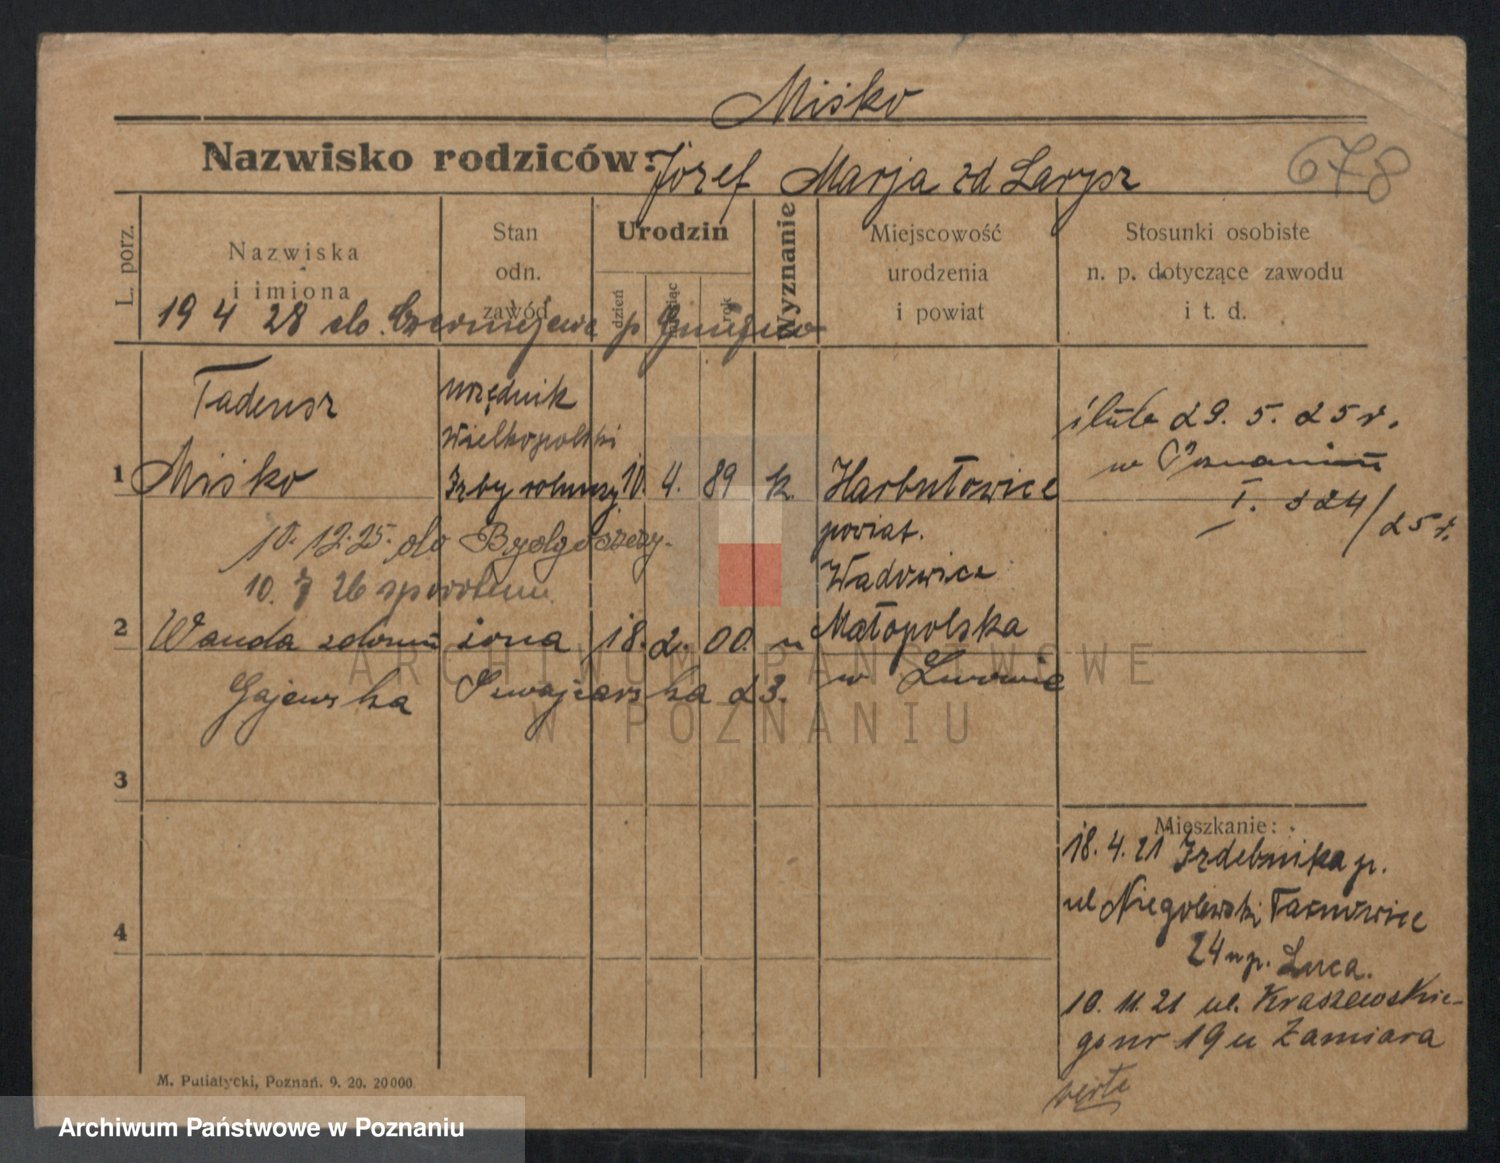 Miśko
Nazwisko rodziców: Józef Marja zd Larysz
678
L. porz.
Nazwiska i imiona
Stan odn. zawód
Urodzin
dzień
miesiąc
rok
Wyznanie
Miejscowość urodzenia i powiat
Stosunki osobiste n. p. dotyczące zawodu i t. d.
19 4 28 do Czerniejewa p
Tadeusz
urzędnik
Wielkopolski
1 Miśko Izby rolniczy 10. 4. 89 k. Harbutowice
powiat.
Wadowice
Małopolska
ślub 29. 5. 25 r.
w Poznaniu
I. 324/25 r.
10. 12. 25. do Bydgoszczy.
10. 7 26 spowrotem
2 Wanda z domu żona 18. 2. 00. w Lwowie
Gajewska Szwajcarska 23.
3
4
Mieszkanie:
18. 4. 21 Izdebnika p.
ul Niegolewski Tarnowice
24 u p. Luca.
10. 11. 21 ul. Kraszewskie-
go nr 19 u Zamiara
verte
M. Putiatycki, Poznań. 9. 20. 20000
ARCHIWUM PAŃSTWOWE
W POZNANIU
Archiwum Państwowe w Poznaniu